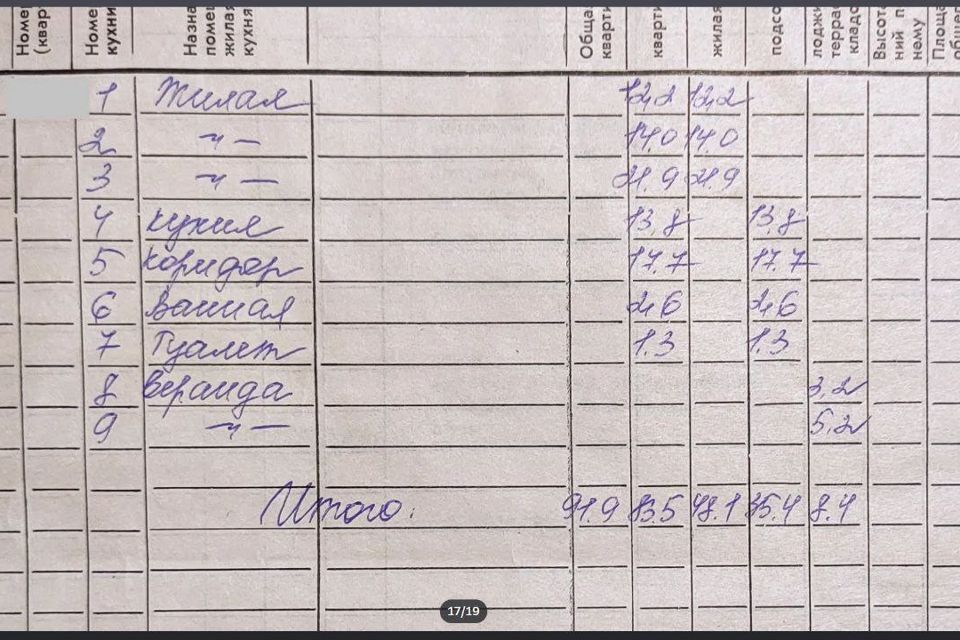 Номе (квар
Номе кухни
Назна помец жилая кухня
Обща кварти
кварти
жилая
подсо
лоджи терра кладо
Высот ний п нему
Площа обще
1 Жилая 12,2 12,2
2 –"– 14.0 14.0
3 –"– 21.9 21.9
4 кухня 13,8 13,8
5 коридор 17.7 17.7
6 Ванная 2,6 2,6
7 Туалет 1.3 1.3
8 Веранда 3,2
9 –"– 5.2
Итого: 91.9 83.5 48.1 35.4 8.4
17/19